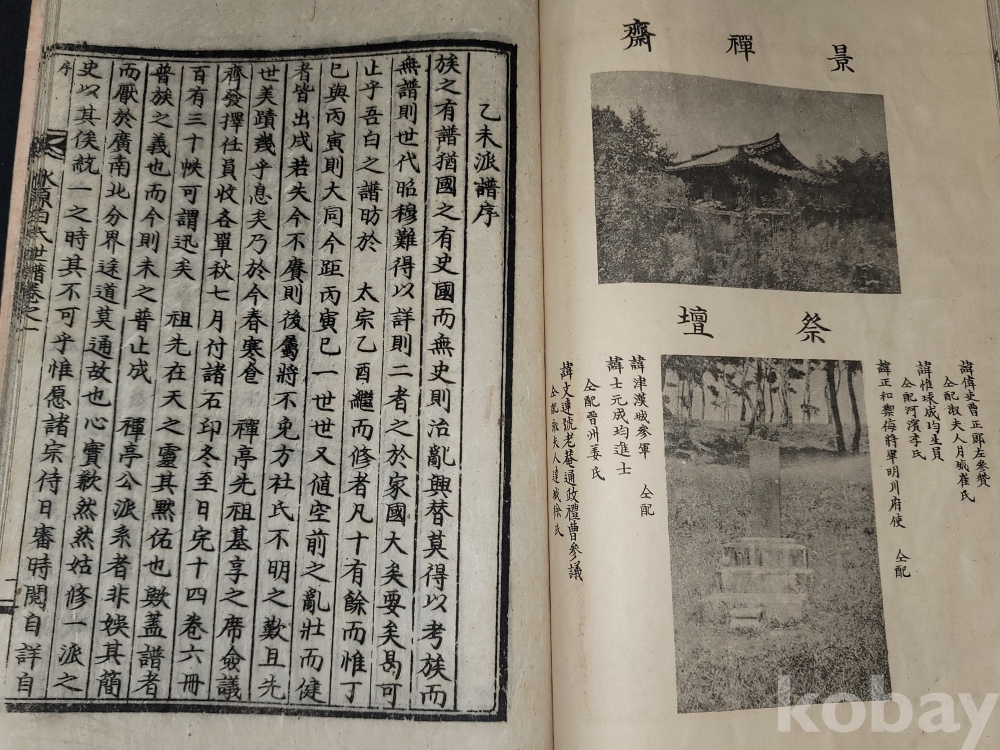 景禪齋
祭壇
諱偉史曹正郎左參贊
仝配淑夫人月城崔氏
諱惟球成均生員
仝配河濱李氏
諱正和禦侮將軍明川府使 仝配
諱津漢城參軍 仝配
諱士元成均進士
仝配晉州姜氏
諱文達號老菴通政禮曹參議
仝配淑夫人達城徐氏
乙未派譜序
族之有譜猶國之有史國而無史則治亂興替莫得以考族而
無譜則世代昭穆難得以詳則二者之於家國大矣要矣曷可
止乎吾白之譜昉於 太宗乙酉繼而修者凡十有餘而惟丁
巳與丙寅則大同今距丙寅已一世世又値空前之亂壯而健
者皆出戍若失今不賡則後屬將不免方社氏不明之歎且先
世美蹟幾乎息矣乃於今春寒食 禪亭先祖基享之席僉議
齊發擇任員收各單秋七月付諸石印冬至日完十四卷六冊
百有三十帙可謂迅矣 祖先在天之靈其黙佑也歟蓋譜者
普族之義也而今則未之普止成 禪亭公派系者非娛其簡
而厭於廣南北分界途道莫通故也心實歉然然姑修一派之
史以其俟統一之時其不可乎惟愿諸宗待日審時閱自詳自
序
水原白氏世譜卷之一
一
kobay